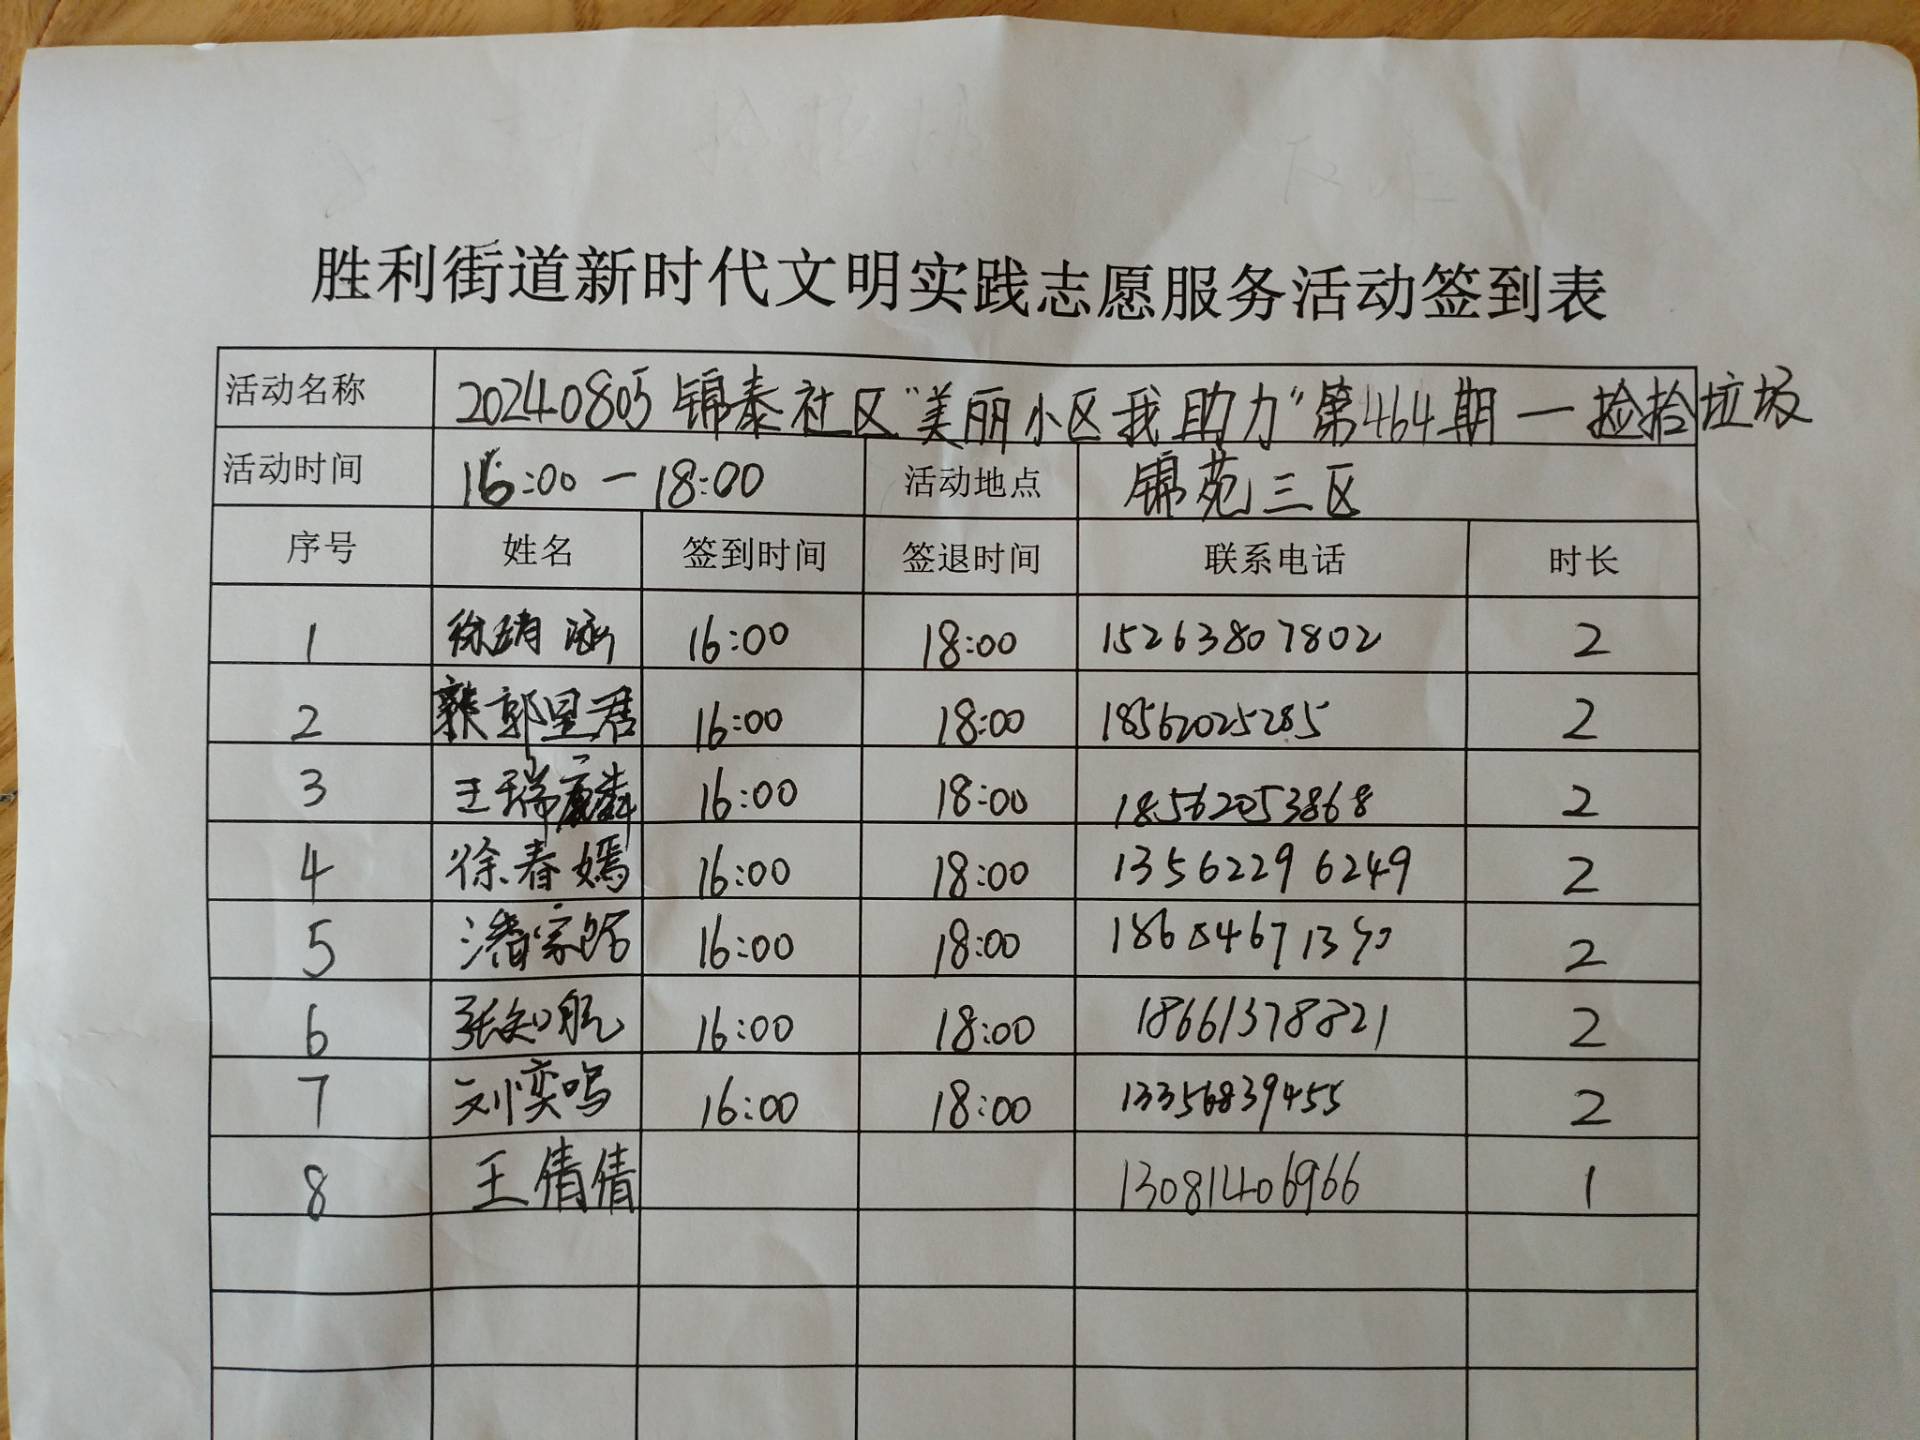 胜利街道新时代文明实践志愿服务活动签到表
活动名称 20240805锦泰社区"美丽小区我助力"第464期一捡拾垃圾
活动时间 16:00-18:00 活动地点 锦苑三区
序号 姓名 签到时间 签退时间 联系电话 时长
1 徐靖涵 16:00 18:00 15263807802 2
2 郭星君 16:00 18:00 18562025285 2
3 王瑞麟 16:00 18:00 18562053868 2
4 徐春嫣 16:00 18:00 13562296249 2
5 潘家 16:00 18:00 2
6 张知航 16:00 18:00 18661378821 2
7 刘奕鸣 16:00 18:00 13356839455 2
8 王倩倩 13081406966 1